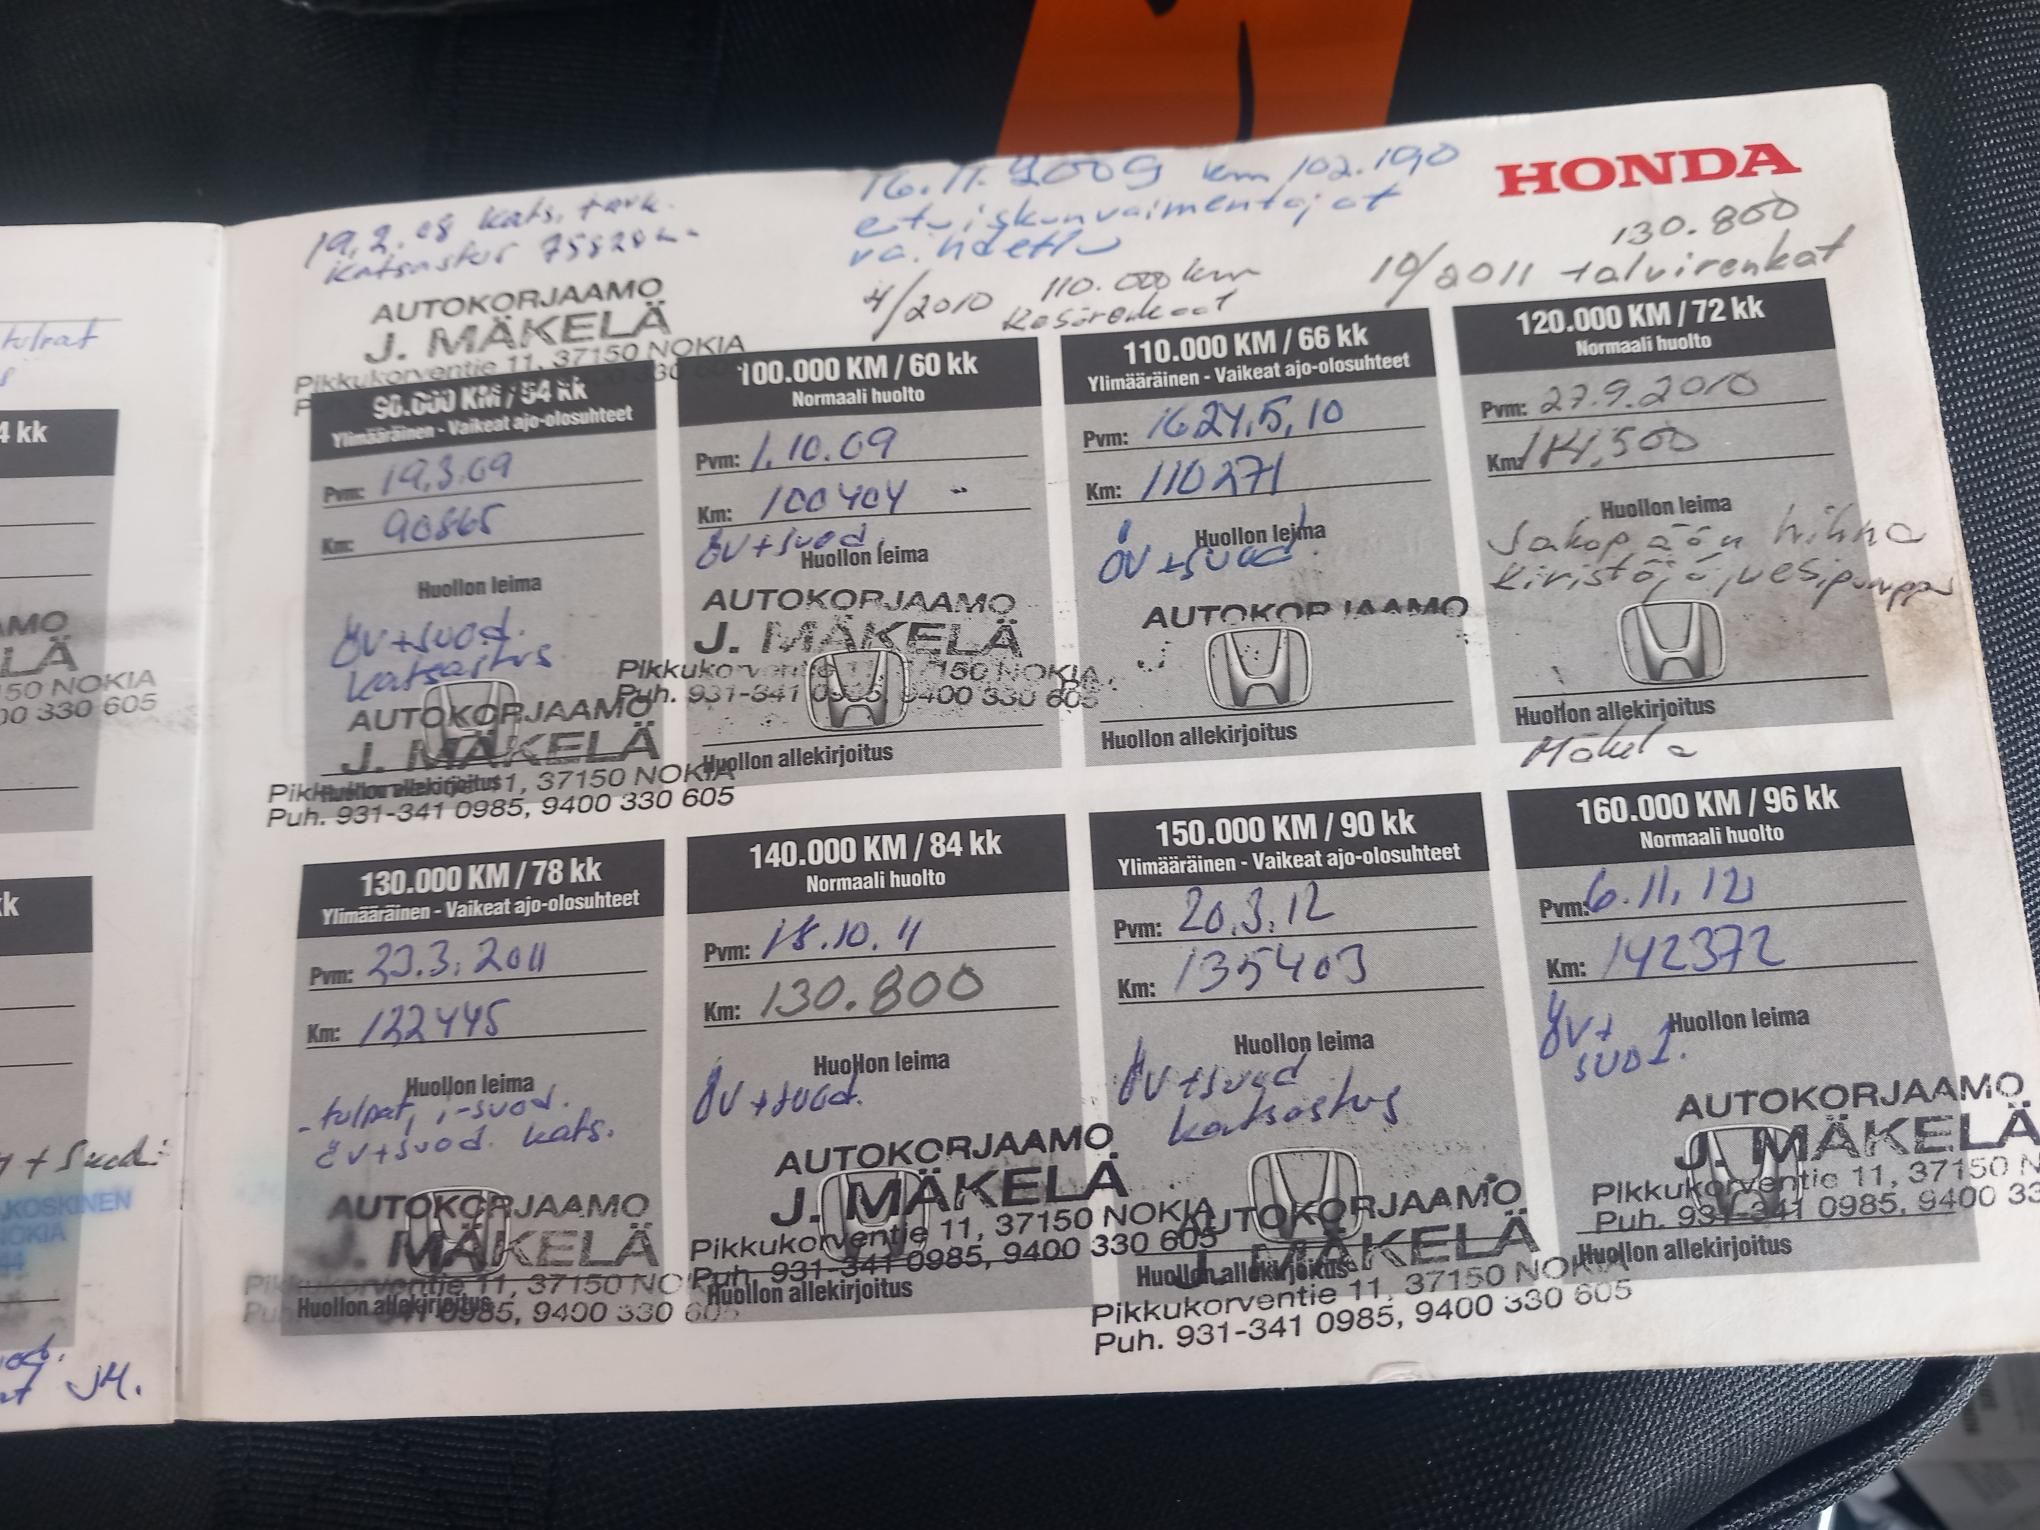 HONDA
19.2.08 kats. tark.
katsastus 75820km
16.11.2009 km 102.190
etuiskunvaimentajat
vaihdettu
4/2010 110.000 km
Kesärenkaat
130.800
10/2011 talvirenkat
AUTOKORJAAMO
J. MÄKELÄ
Pikkukorventie 11, 37150 NOKIA
90.000 KM / 54 kk
Ylimääräinen - Vaikeat ajo-olosuhteet
Pvm: 19.3.09
Km: 90865
Huollon leima
ÖV+suod.
katsastus
AUTOKORJAAMO
J. MÄKELÄ
Pikkukorventie 11, 37150 NOKIA
Huollon allekirjoitus
Puh. 931-341 0985, 9400 330 605
100.000 KM / 60 kk
Normaali huolto
Pvm: 1.10.09
Km: 100404
ÖV+suod.
Huollon leima
AUTOKORJAAMO
J. MÄKELÄ
Pikkukorventie 11, 37150 NOKIA
Puh. 931-341 0985, 9400 330 605
Huollon allekirjoitus
110.000 KM / 66 kk
Ylimääräinen - Vaikeat ajo-olosuhteet
Pvm: 24.5.10
Km: 110271
Huollon leima
ÖV+suod.
AUTOKORJAAMO
Huollon allekirjoitus
120.000 KM / 72 kk
Normaali huolto
Pvm: 27.9.2010
Km: 114,500
Huollon leima
Jakopään hihna
Kiristäjä, vesipumppu
Huollon allekirjoitus
Mäkelä
130.000 KM / 78 kk
Ylimääräinen - Vaikeat ajo-olosuhteet
Pvm: 23.3.2011
Km: 122445
Huollon leima
-tulpat, i-suod.
ÖV+suod. kats.
AUTOKORJAAMO
J. MÄKELÄ
Pikkukorventie 11, 37150 NOKIA
Huollon allekirjoitus
341 0985, 9400 330 605
140.000 KM / 84 kk
Normaali huolto
Pvm: 18.10.11
Km: 130.800
Huollon leima
ÖV+suod.
AUTOKORJAAMO
J. MÄKELÄ
Pikkukorventie 11, 37150 NOKIA
Puh. 931-341 0985, 9400 330 605
Huollon allekirjoitus
150.000 KM / 90 kk
Ylimääräinen - Vaikeat ajo-olosuhteet
Pvm: 20.3.12
Km: 135403
Huollon leima
ÖV+suod
katsastus
AUTOKORJAAMO
J. MÄKELÄ
Huollon allekirjoitus
Pikkukorventie 11, 37150 NOKIA
Puh. 931-341 0985, 9400 330 605
160.000 KM / 96 kk
Normaali huolto
Pvm: 6.11.12
Km: 142372
Huollon leima
ÖV+
suod.
AUTOKORJAAMO
J. MÄKELÄ
Pikkukorventie 11, 37150 N
Puh. 931-341 0985, 9400 33
Huollon allekirjoitus
tulpat
4 kk
AMO
LÄ
150 NOKIA
00 330 605
kk
+ Suod.
KOSKINEN
NOKIA
44
JM.